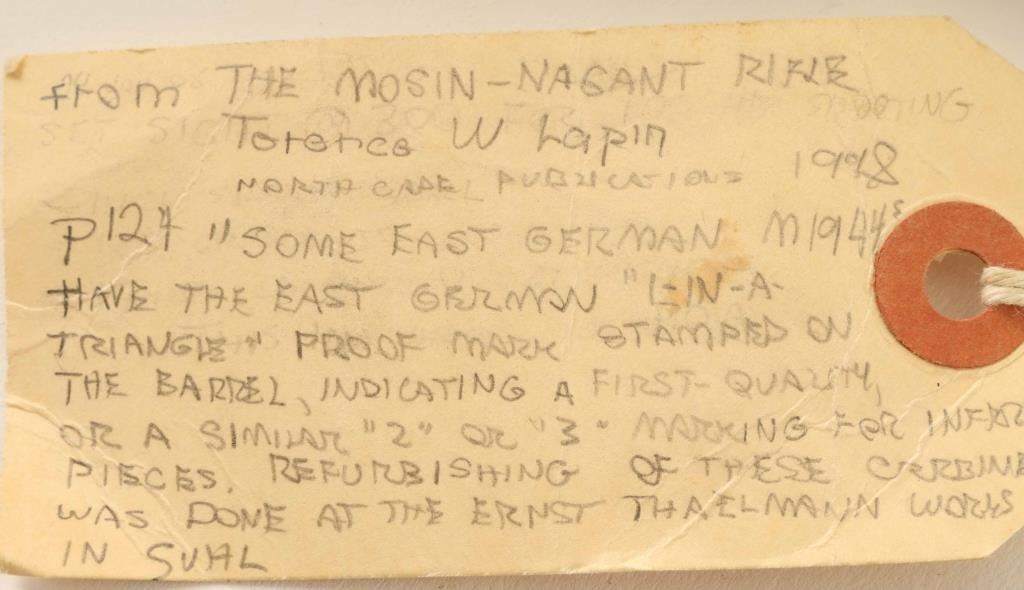 from THE MOSIN-NAGANT RIFLE
Terence W Lapin
NORTH CAPE PUBLICATIONS 1998
P124 "SOME EAST GERMAN M1944s
HAVE THE EAST GERMAN "1-IN-A-
TRIANGLE" PROOF MARK STAMPED ON
THE BARREL, INDICATING A FIRST-QUALITY,
OR A SIMILAR "2" OR "3" MARKING FOR INFER
PIECES. REFURBISHING OF THESE CARBINE
WAS DONE AT THE ERNST THAELMANN WORKS
IN SUHL